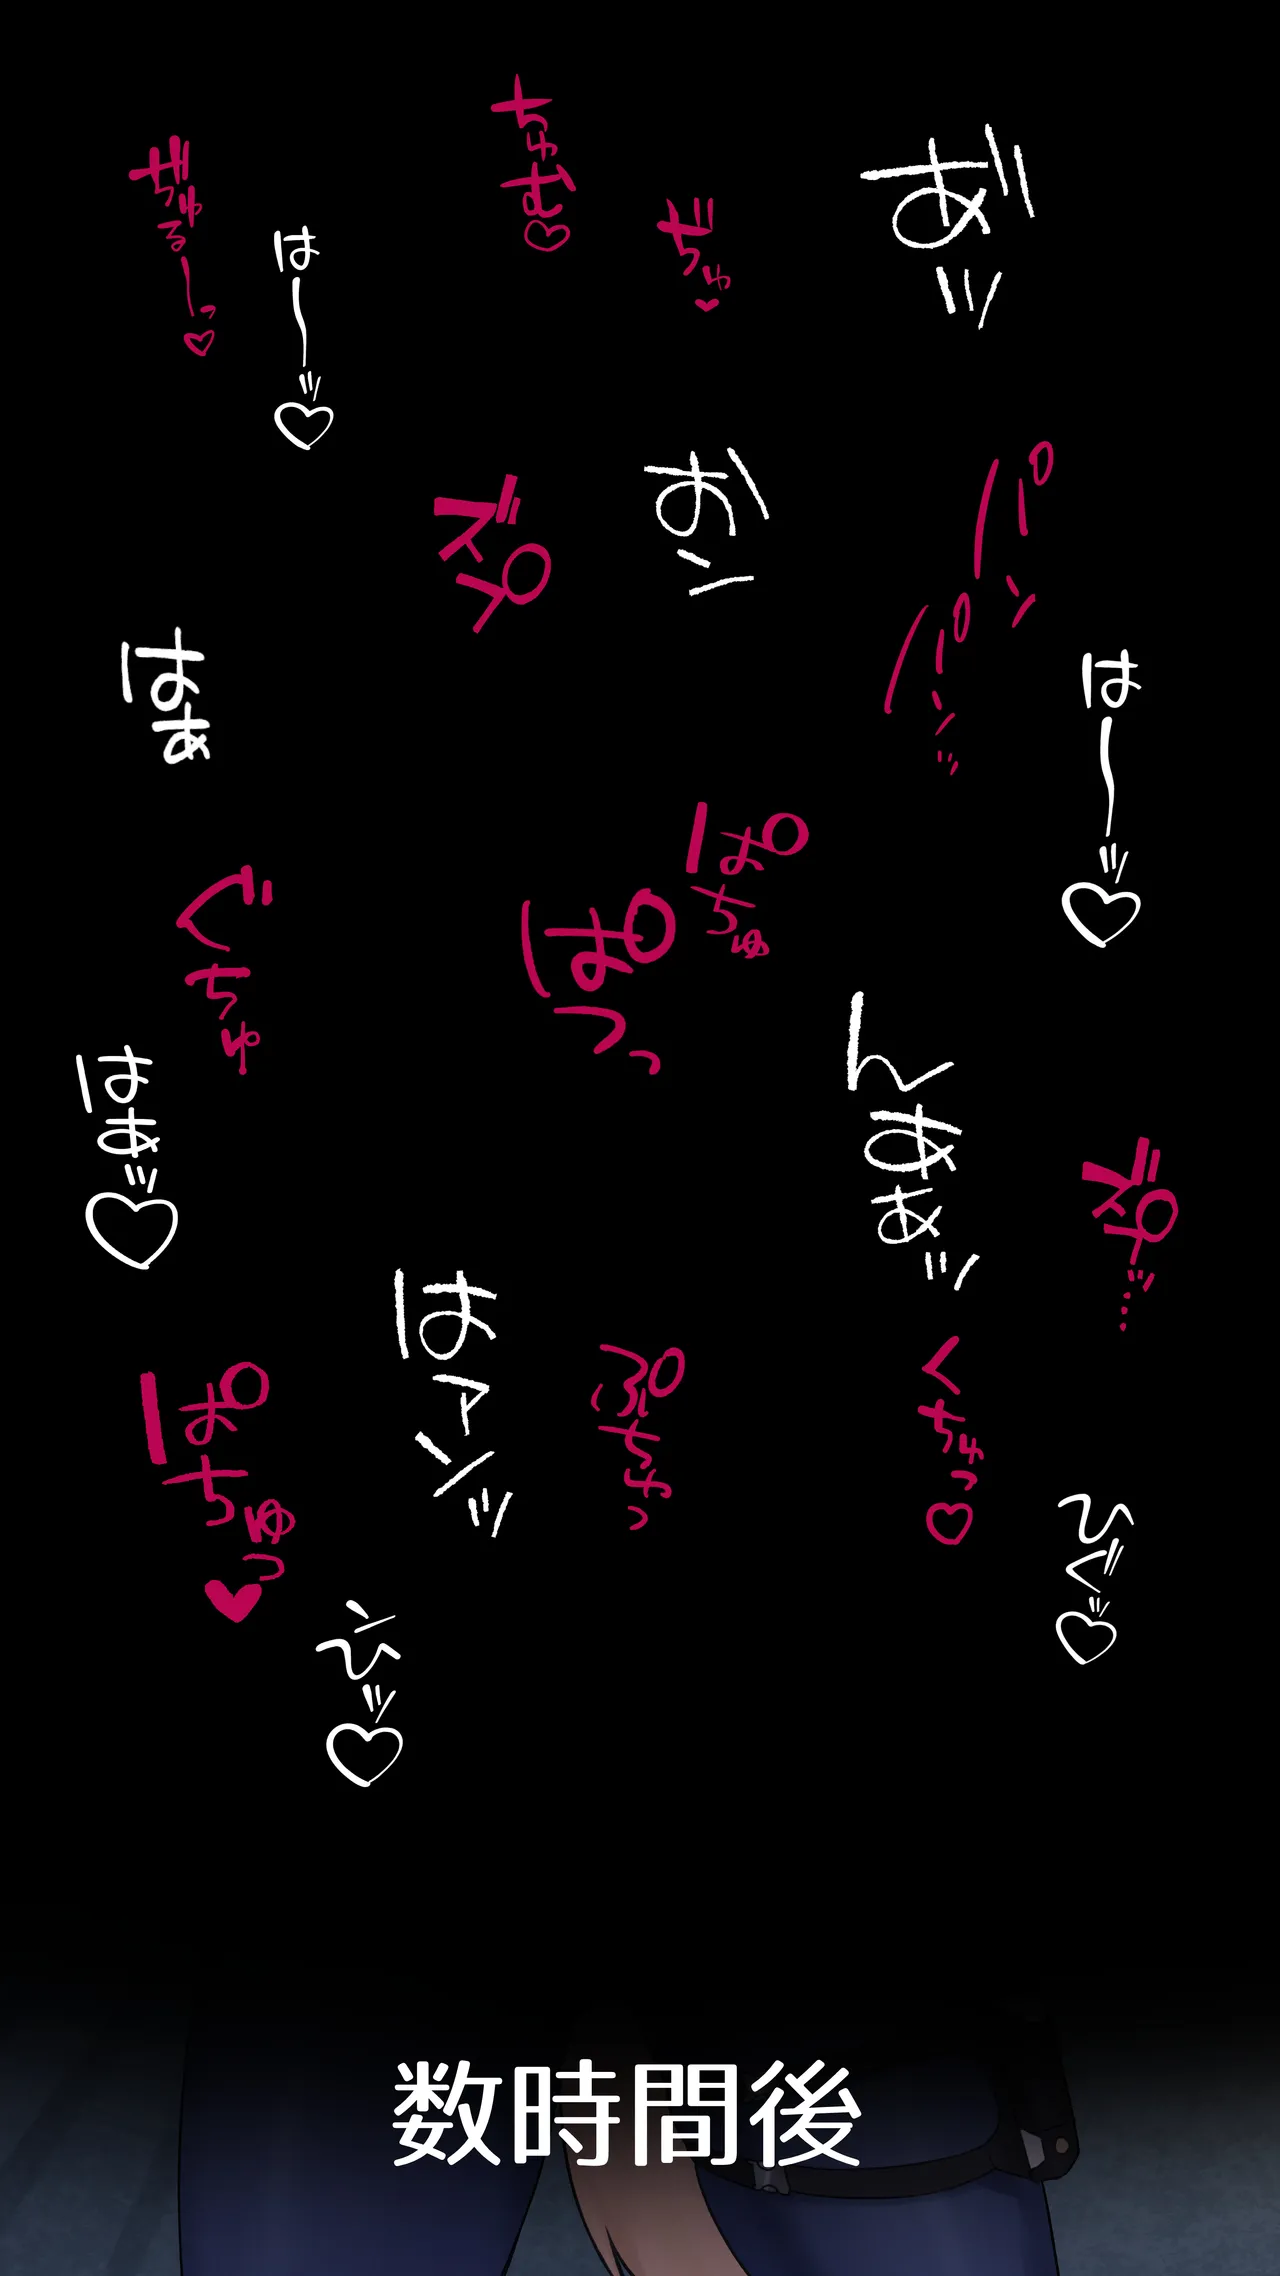 あ゛ッ
ぢゅ♥
ちゅむ♡
はーッ♡
ぢゅるーっ♡
パン
パンッ
お゛ン
ズプ
はーッ♡
はぁ
ぱちゅ
ぱつっ
ぐちゅ
んあぁッ
はぁッ♡
ズプッ…
はァンッ
くちゅっ♡
ぷちゅっ
ぱちゅっ♥
ひぐッ♡
ンひッ♡
数時間後